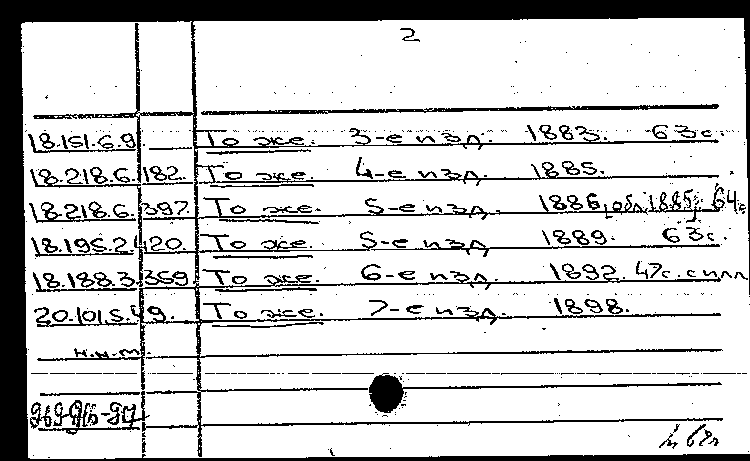 2
18.151.6.9. То же. 3-е изд. 1883. 63с.
18.218.6.182. То же. 4-е изд. 1885.
18.218.6.397. То же. 5-е изд. 1886, [обл. 1885]. 64с.
18.195.2.420. То же. 5-е изд. 1889. 63с.
18.188.3.369. То же. 6-е изд. 1892. 47с. с илл.
20.101.5.49. То же. 7-е изд. 1898.